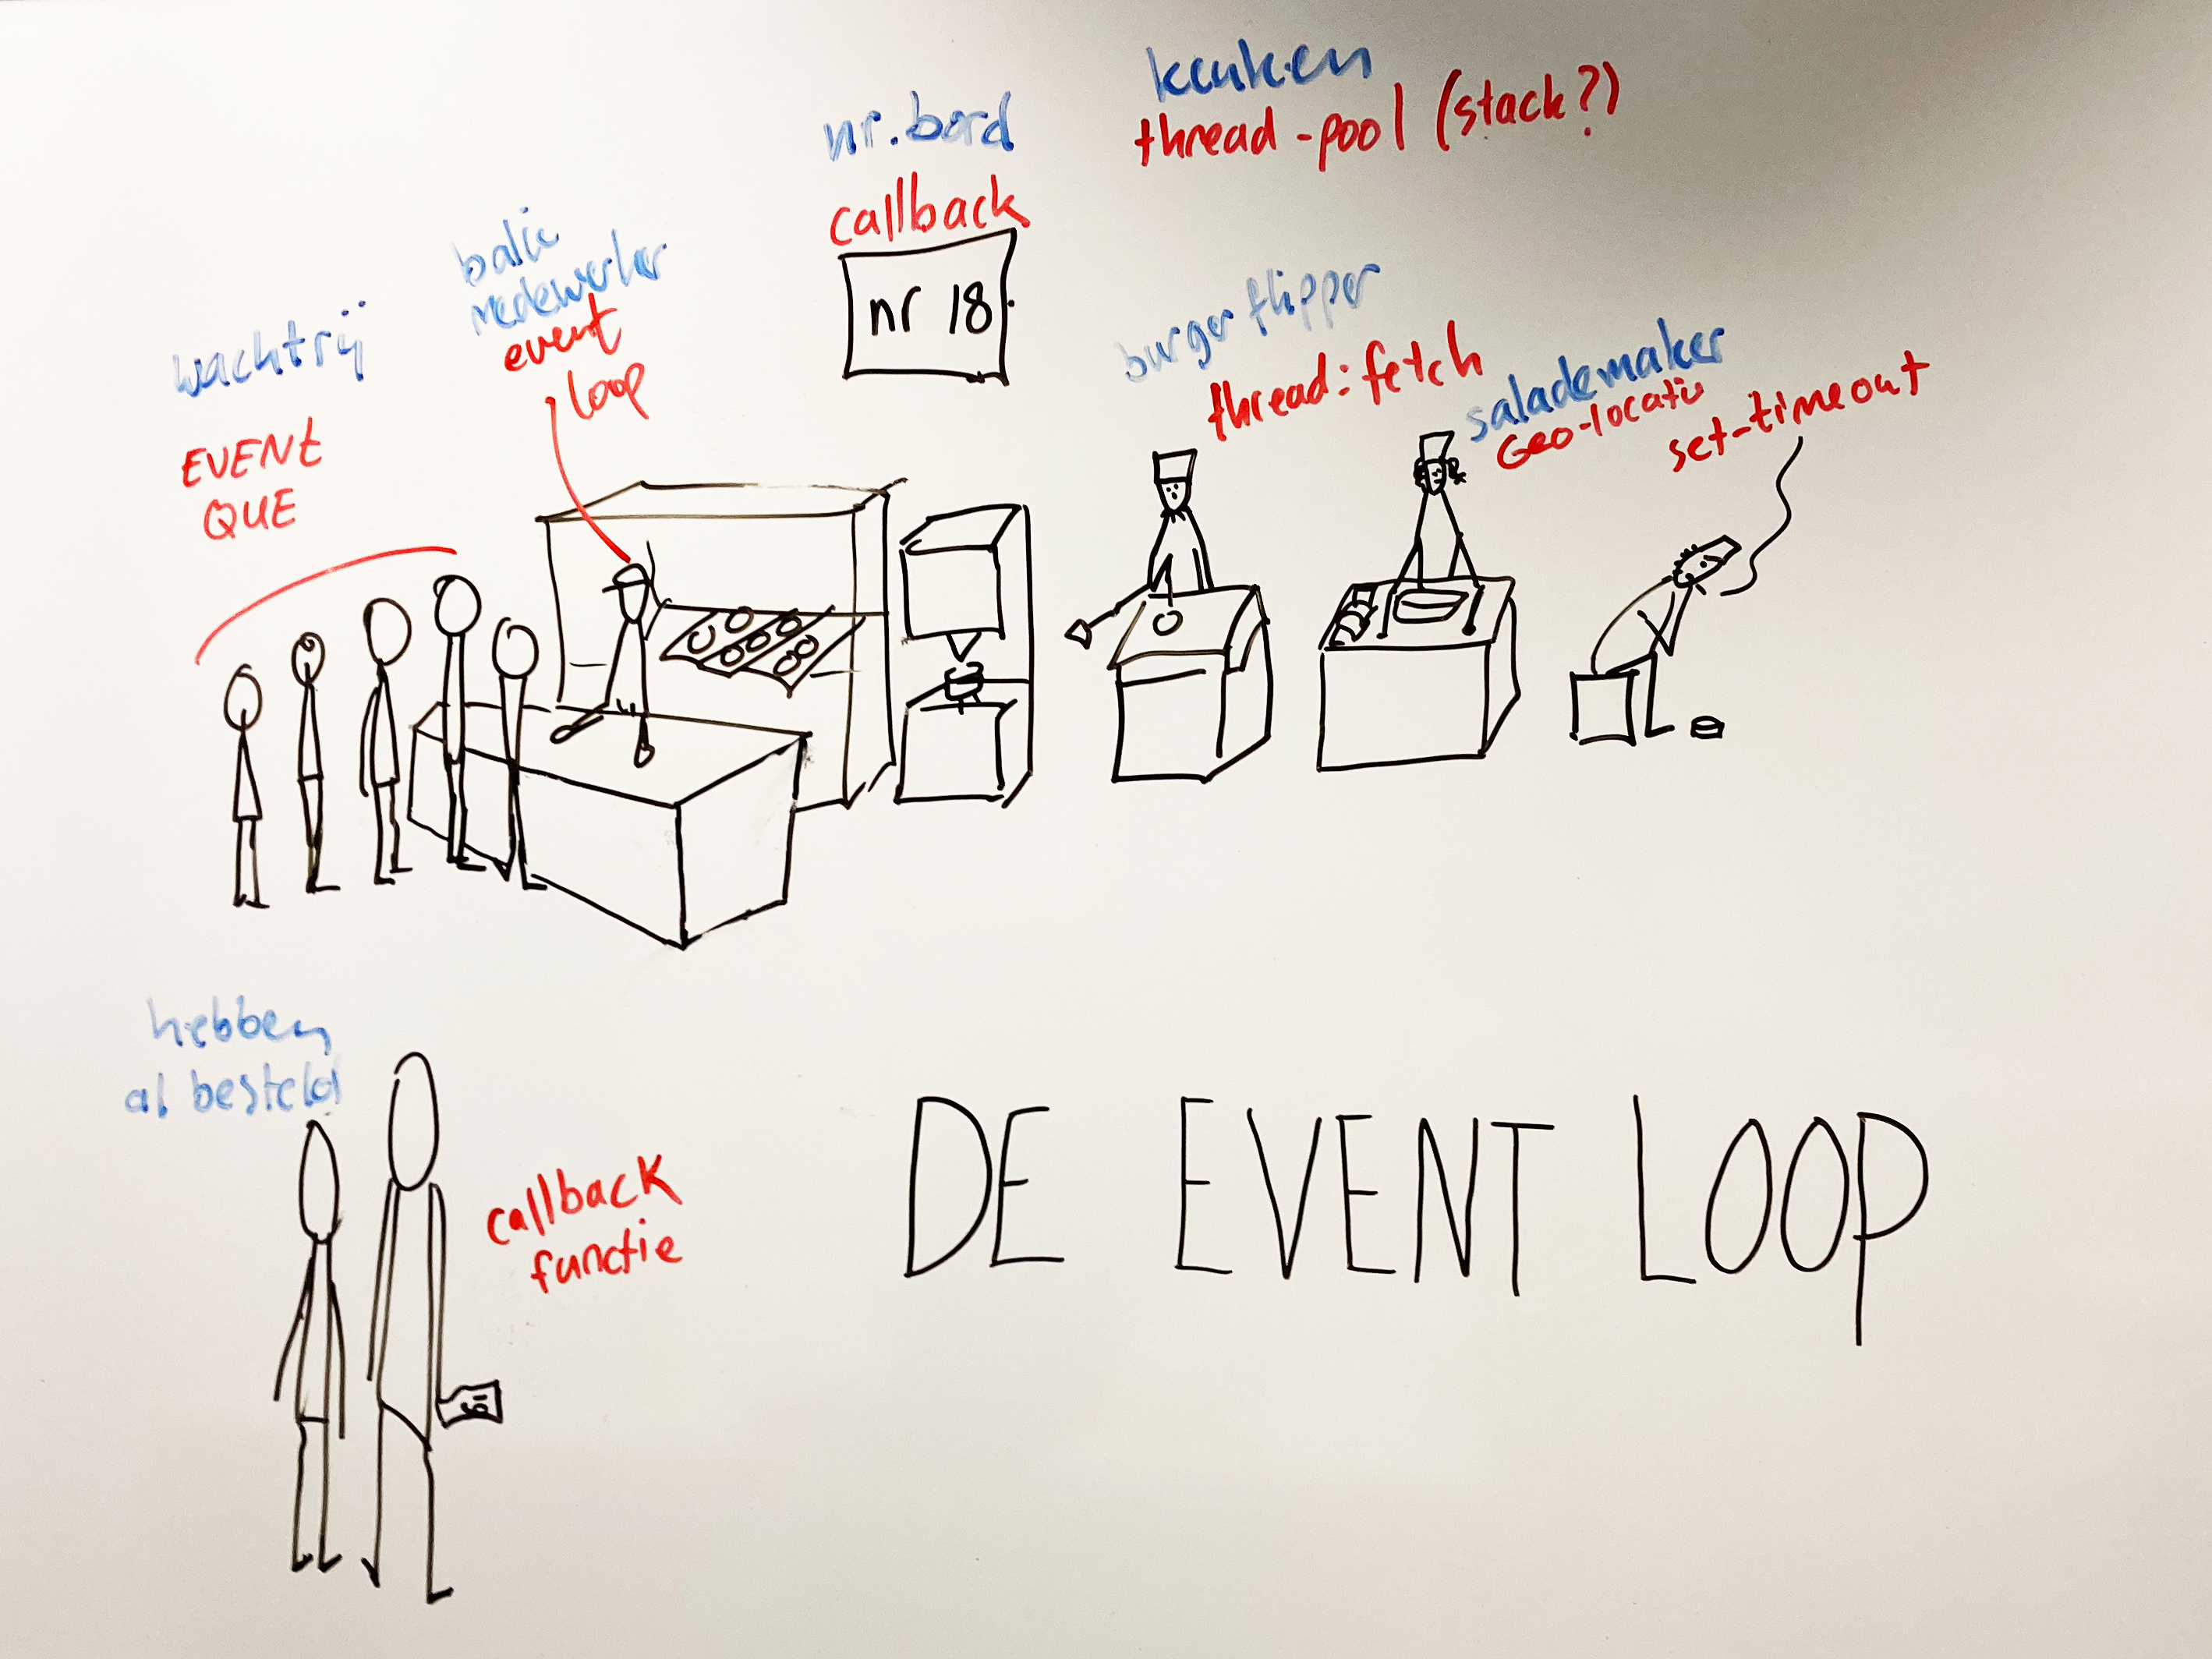 keuken
thread-pool (stack?)
nr. bord
callback
nr 18
balie
medewerker
event
loop
wachtrij
EVENT
QUE
burger flipper
thread: fetch
salademaker
Geo-locatie
set-timeout
hebben
al besteld
callback
functie
DE EVENT LOOP